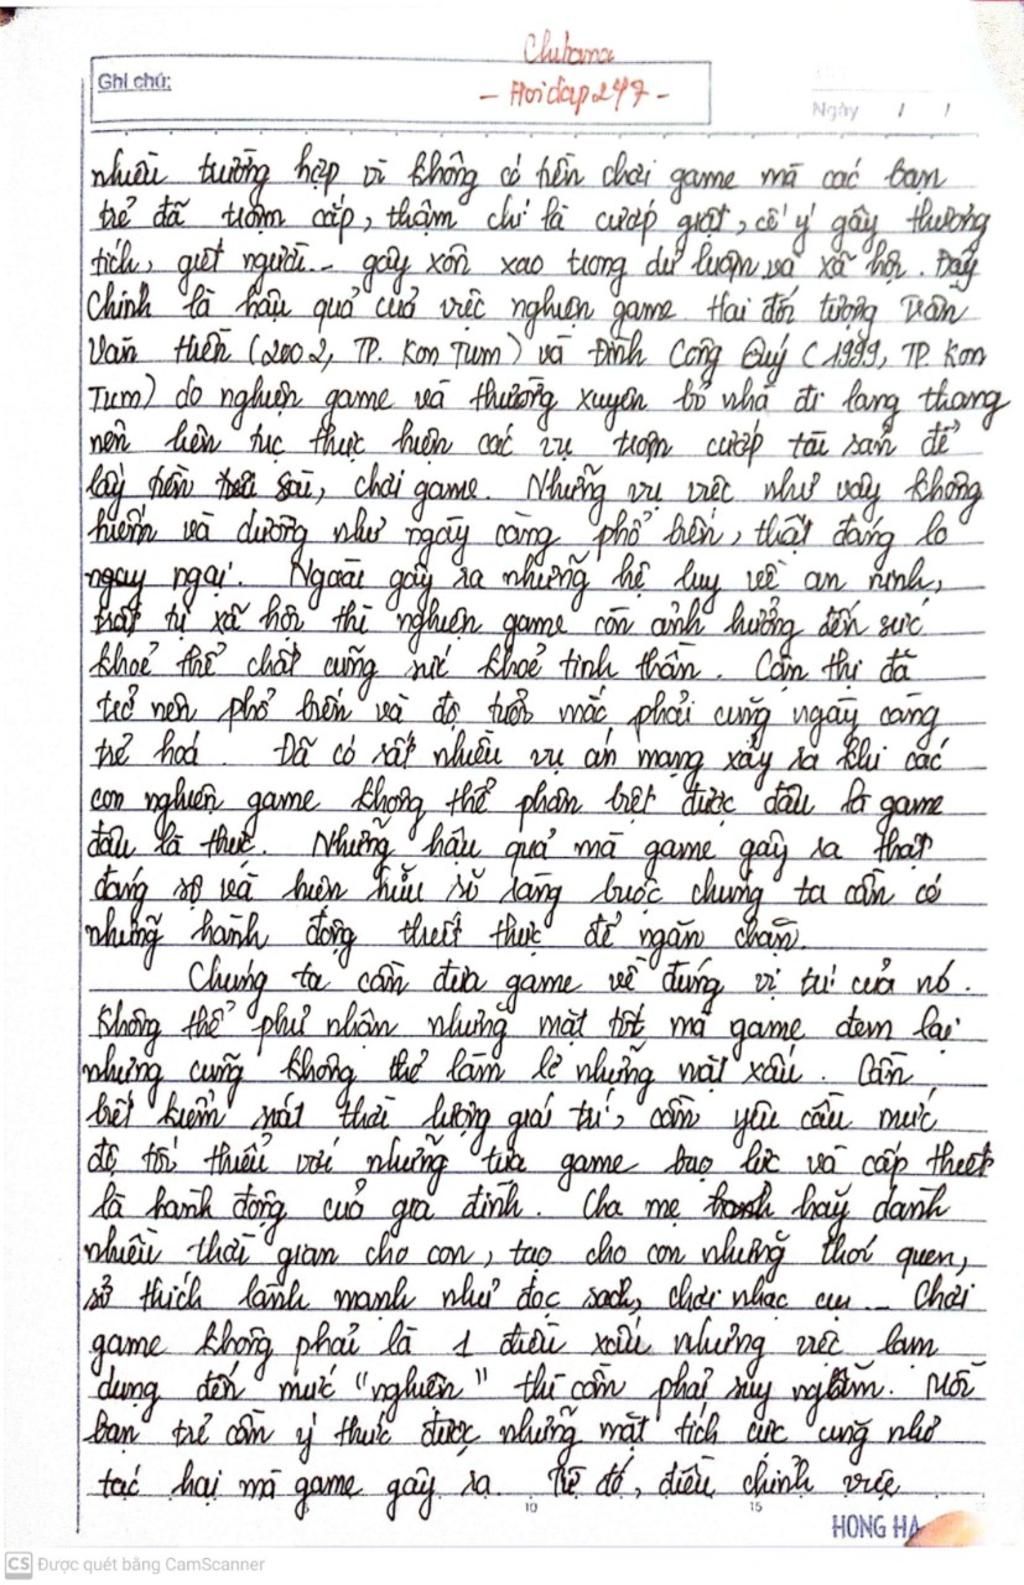 Chibana
Ghi chú:
- Hoidap247 -
Ngày / /
nhiều trường hợp vì không có tiền chơi game mà các bạn
trẻ đã trộm cắp, thậm chí là cướp giật, cố ý gây thương
tích, giết người... gây xôn xao trong dư luận và xã hội. Đấy
chính là hậu quả của việc nghiện game. Hai đối tượng Trần
Văn Hiền (2002, TP. Kon Tum) và Đinh Công Quý (1999, TP. Kon
Tum) do nghiện game và thường xuyên bỏ nhà đi lang thang
nên liên tục thực hiện các vụ trộm cướp tài sản để
lấy tiền tiêu sài, chơi game. Những vụ việc như vậy không
hiếm và dường như ngày càng phổ biến, thật đáng lo
ngay ngại. Ngoài gây ra những hệ lụy về an ninh,
trật tự xã hội thì nghiện game còn ảnh hưởng đến sức
khoẻ thể chất cũng sức khoẻ tinh thần. Cận thị đã
trở nên phổ biến và độ tuổi mắc phải cũng ngày càng
trẻ hoá. Đã có rất nhiều vụ án mạng xảy ra khi các
con nghiện game không thể phân biệt được đâu là game
đâu là thực. Những hậu quả mà game gây ra thật
đáng sợ và hiện hữu rõ ràng buộc chúng ta cần có
những hành động thiết thực để ngăn chặn.
Chúng ta cần đưa game về đúng vị trí của nó.
Không thể phủ nhận những mặt tốt mà game đem lại
nhưng cũng không thể làm lơ những mặt xấu. Cần
biết kiểm soát thời lượng giải trí, cần yêu cầu mức
độ tối thiểu với những tựa game bạo lực và cấp thiết
là hành động của gia đình. Cha mẹ hãy dành
nhiều thời gian cho con, tạo cho con những thói quen,
sở thích lành mạnh như đọc sách, chơi nhạc cụ... Chơi
game không phải là 1 điều xấu nhưng việc lạm
dụng đến mức "nghiện" thì cần phải suy ngẫm. Mỗi
bạn trẻ cần ý thức được những mặt tích cực cũng như
tác hại mà game gây ra. Từ đó, điều chỉnh việc
10 15
HONG HA
CS Được quét bằng CamScanner